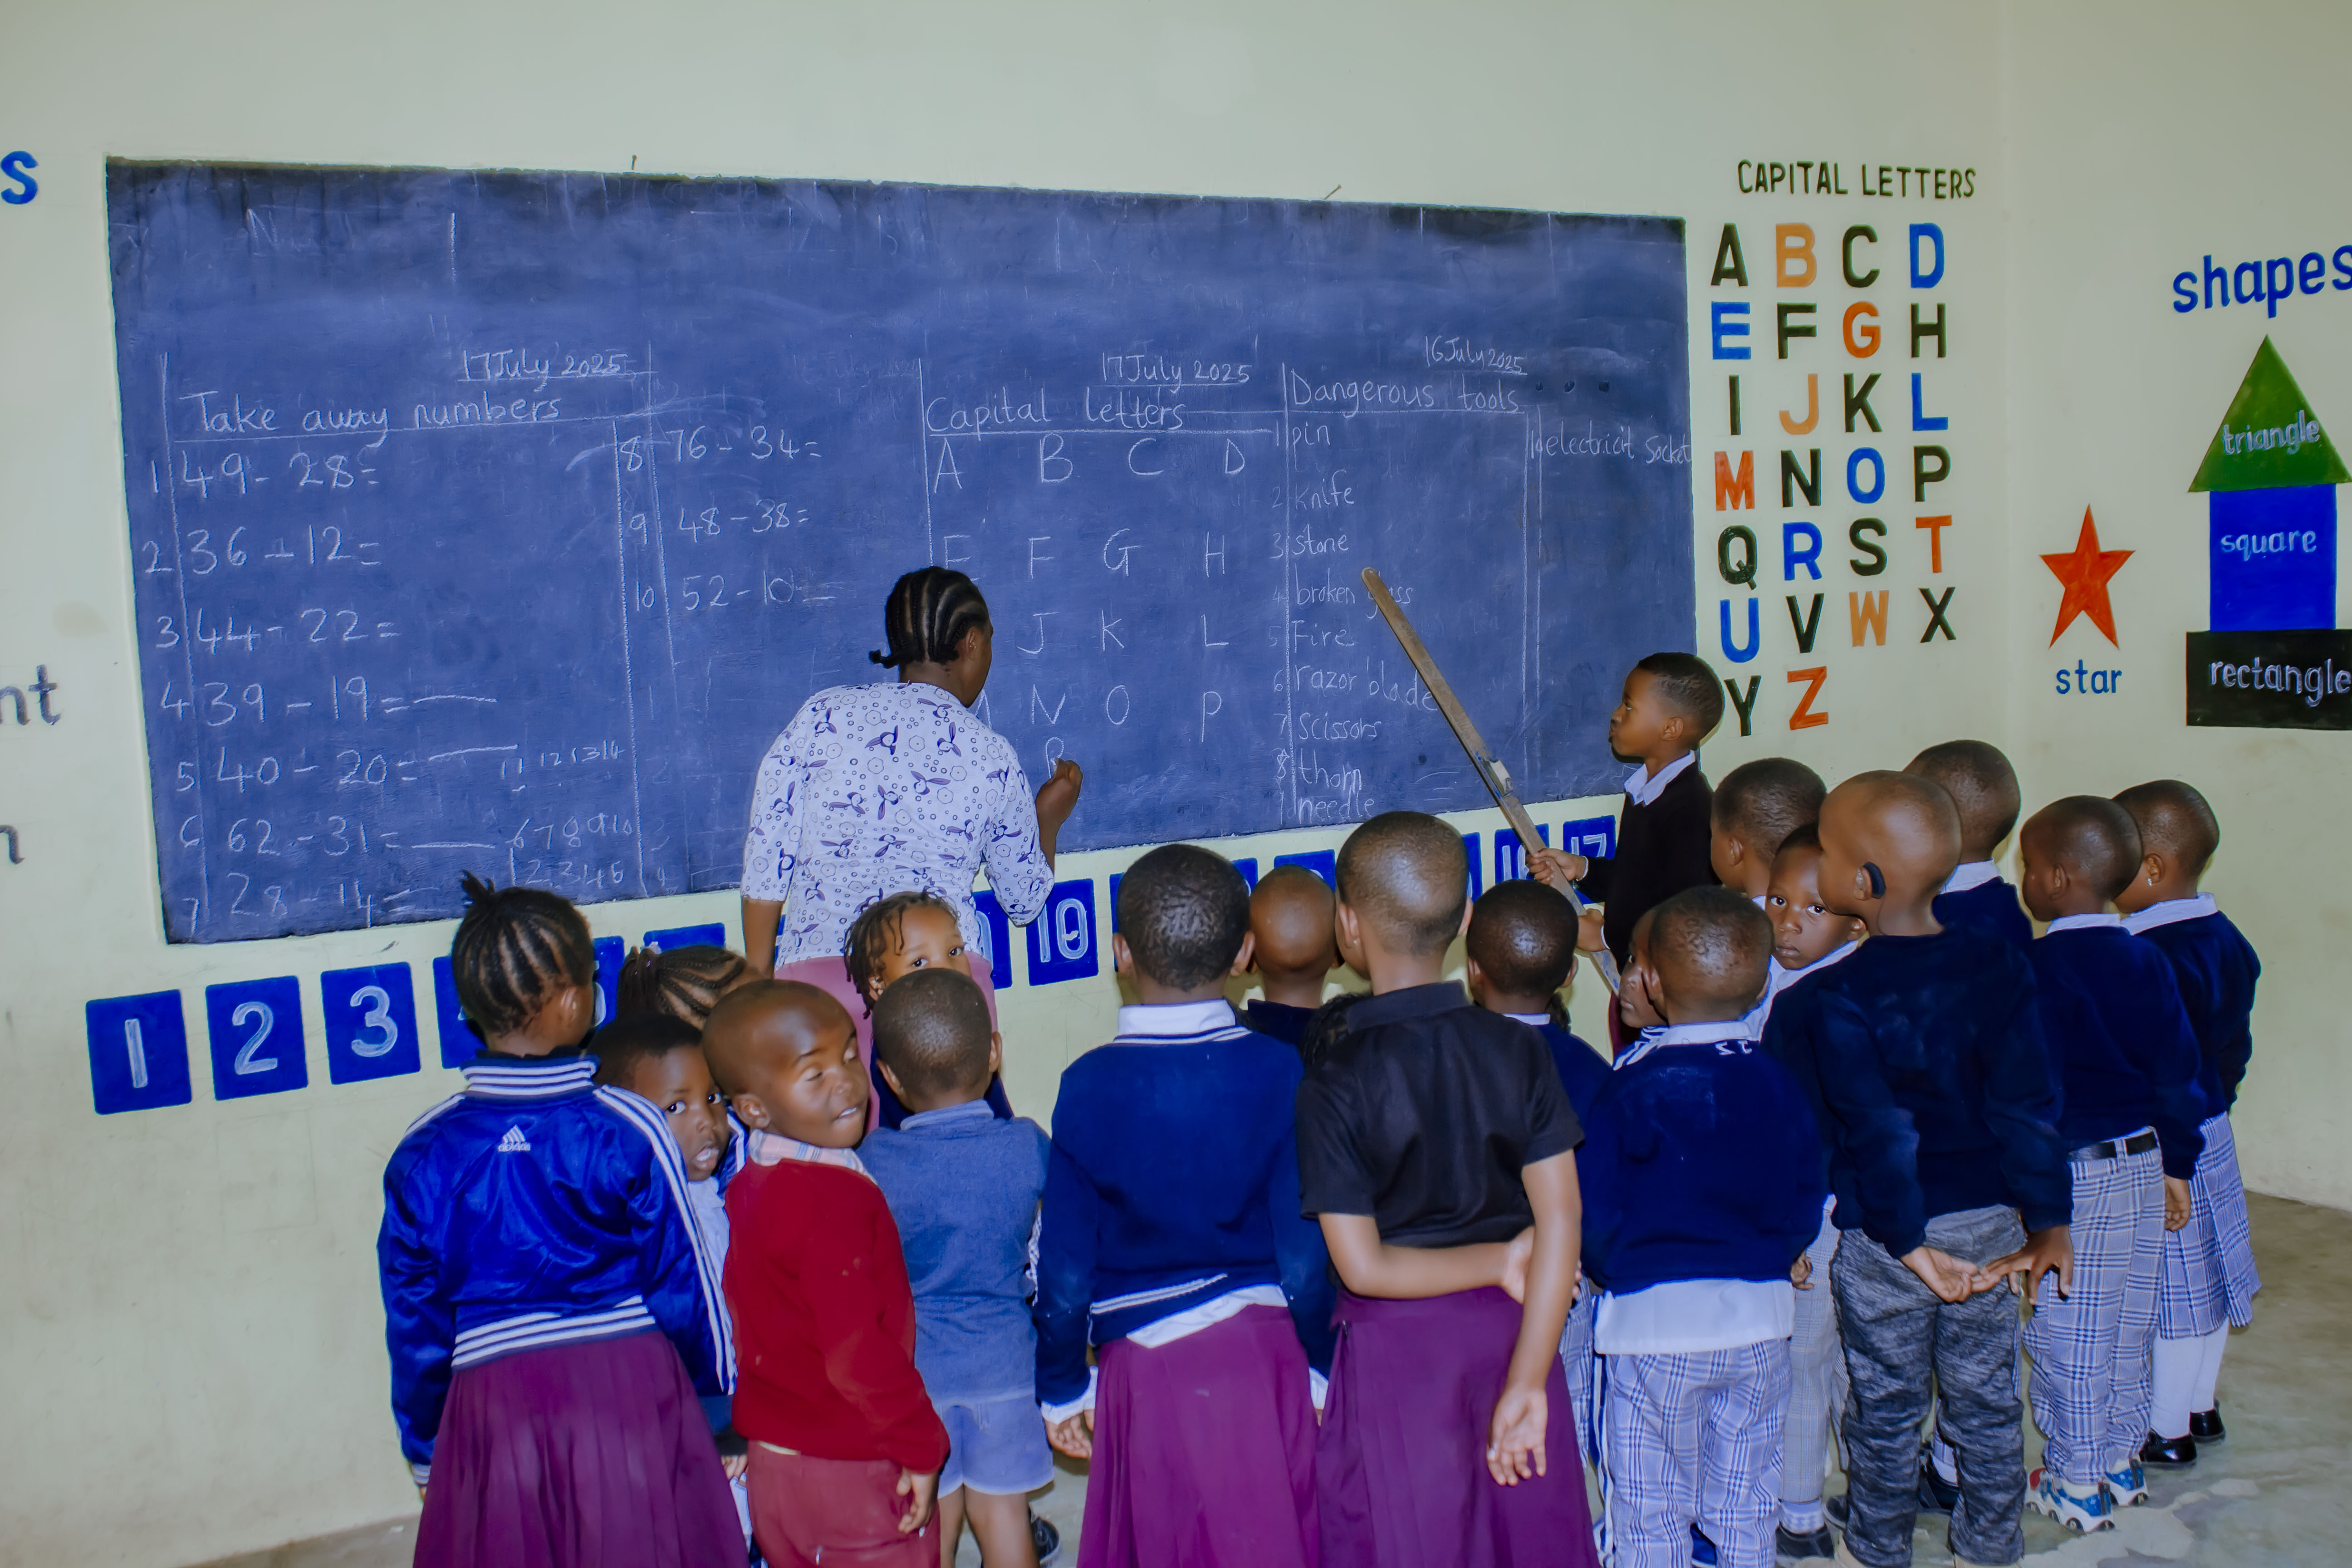 s
nt
17 July 2025
Take away numbers
1 49 - 28 =
2 36 - 12 =
3 44 - 22 =
4 39 - 19 =
5 40 - 20 =
11 12 13 14
6 62 - 31 =
6 7 8 9 10
1 2 3 4 5
7 28 - 14 =
8 76 - 34 =
9 48 - 38 =
10 52 - 10 =
17 July 2025
Capital letters
A B C D
E F G H
J K L
N O P
R
16 July 2025
Dangerous tools
1 pin
2 knife
3 stone
4 broken glass
5 Fire
6 razor blade
7 scissors
8 thorn
needle
electricit socket
CAPITAL LETTERS
A B C D
E F G H
I J K L
M N O P
Q R S T
U V S W X
Y Z
shapes
triangle
square
rectangle
star
1 2 3
10
17
adidas